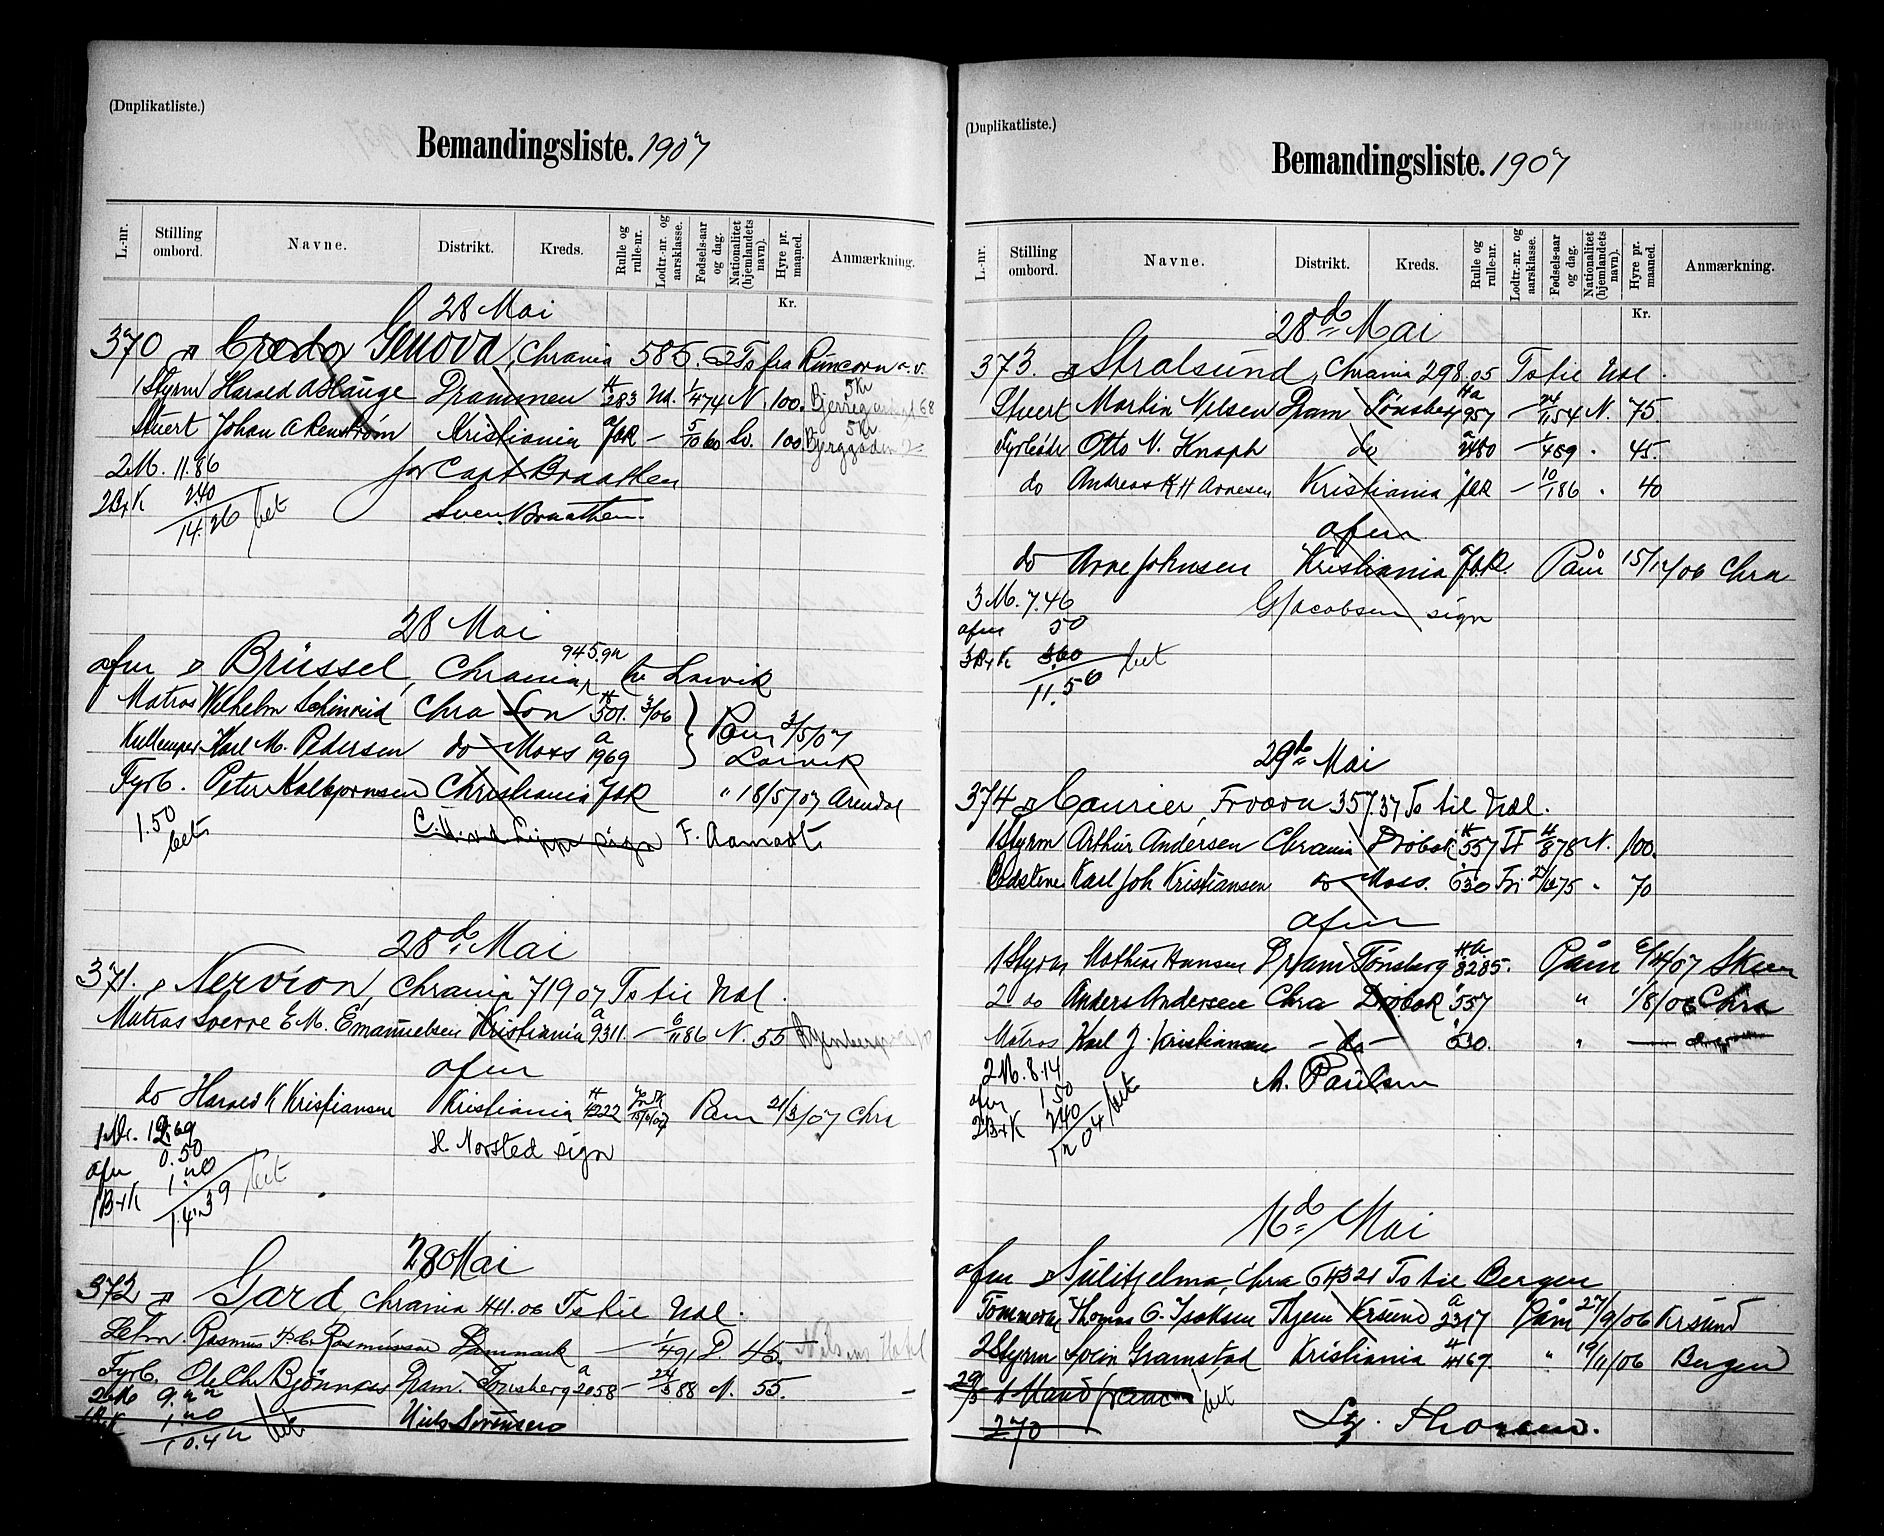 (Duplikatliste.)
Bemandingsliste. 1907
L.-nr. Stilling ombord. Navne. Distrikt. Kreds. Rulle og rulle-nr. Lodtr.-nr. og aarsklasse. Fødsels-aar og dag. Nationalitet (hjemlandets navn). Hyre pr. maaned. Anmærkning.
Kr.
28 Mai
370 Credo Genova, Chrania 585. Ts fra Runcorn
1 Styrm Harald A Hauge Drammen 283 1/4 74 N. 100. 5 Kr
Stuert Johan A Renström Kristiania JAR — 5/10 60 Sv. 100 5 Kr
2 M. 11.86 for Capt Braathen
2 B+K 2.40
14.26 bet Sven Braathen.
28 Mai
afm Brüssel, Chrania 945.97 til Larvik
Matros Wilhelm Chra Son 501. 3/06
Karl M. Pedersen do Moss a 1969 Paam 3/5/07 Larvik
Fyrb. Peter Kristiania JAR " 18/5/07 Arendal
1.50
bet sign F. Aamodt
28de Mai
371. Nervion, Chrania 719 07 Ts til Udl.
Matros Sverre E M. Emanuelsen Kristiania a 9311 — 6/11 86 N. 55
afm
do Harald K Kristiansen Kristiania 4222 Paam 21/3/07 Chra
1 M. 12.69
afm 0.50 H. Norsted sign
1 B+K 1.20
14.39 bet
28 Mai
372 Gard, Chrania 441.06 Ts til Udl.
Rasmus Rasmussen Danmark — 1/4 91 D. 45.
Fyrb. Ole Chr Bjönnes Dram. Tönsberg a 2058 — 24/3 88 N. 55.
2 M 9.22
1 B+K 1.20 Niels Sörensen
10.42 bet
(Duplikatliste.)
Bemandingsliste. 1907
L.-nr. Stilling ombord. Navne. Distrikt. Kreds. Rulle og rulle-nr. Lodtr.-nr. og aarsklasse. Fødsels-aar og dag. Nationalitet (hjemlandets navn). Hyre pr. maaned. Anmærkning.
Kr.
28de Mai
373. Stralsund, Chrania 298.05 Ts til Udl.
Stuert Martin Nilsen Dram Tönsberg 4957 — 24/11 54 N. 75.
Fyrböter Otto N. Knaph do 2480 — 1/4 59 " 45.
do Andreas K H Arnesen Kristiania JAR — 10/1 86 " 40
afm
do Arne Johnsen Kristiania JAR. Paam 15/12/06 Chra
3 M. 7.46 G Jacobsen sign
afm 50
3 B+K 3.60 bet
11.56
29de Mai
374 Courier, Frværn 357.37 Ts til Udl.
1 Styrm Arthur Andersen Chrania Dröbak 557 11/8 78 N. 100.
Karl Joh Kristiansen do Moss. 630 75 " 70
afm
1 Styrm Mathias Hansen Dram Tönsberg 8285. Paam 6/4/07 Skien
2 do Anders Andersen Chra Dröbak 557 " 1/8/06 Chra
Matros Karl J. Kristiansen — do — 630. "
2 M. 8.14 A. Paulsen
afm 1.50
2 B+K 2.40
12.04 bet
16de Mai
afm Sulitjelma, Chra 643 21 Ts til Bergen
Tömmerm Thomas O. Isaksen Thjem Krsund a 2317 Paam 27/9/06 Krsund
2 Styrm Svein Gramstad Kristiania 4469 " 19/11/06 Bergen
29/5 1 Mand fram bet
2.70 Thorsen.